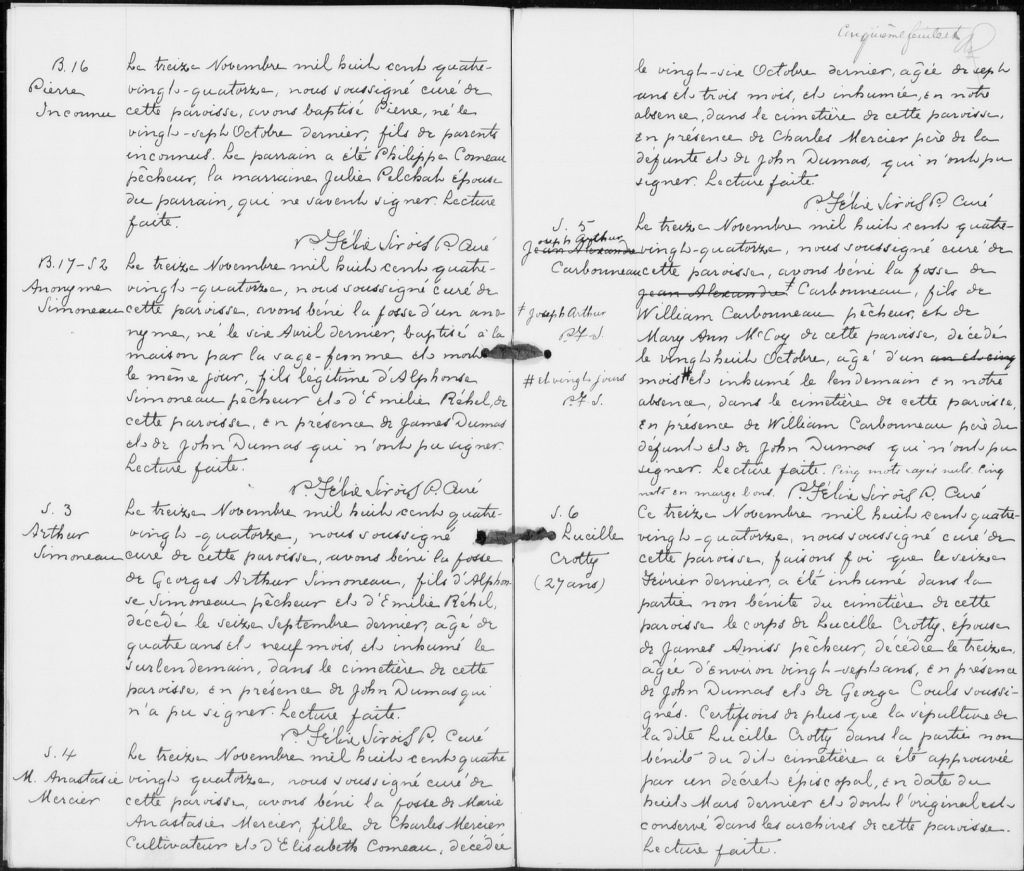 B.16
Pierre
Inconnu
Le treize Novembre mil huit cent quatre-
vingt-quatorze, nous soussigné curé de
cette paroisse, avons baptisé Pierre, né le
vingt-sept Octobre dernier, fils de parents
inconnus. Le parrain a été Philippe Comeau
pêcheur, la marraine Julie Pelchat épouse
du parrain, qui ne savent signer. Lecture
faite.
P. Félix Sirois P. Curé
B.17-S2
Anonyme
Simoneau
Le treize Novembre mil huit cent quatre-
vingt-quatorze, nous soussigné curé de
cette paroisse, avons béni la fosse d'un ano
nyme, né le six Avril dernier, baptisé à la
maison par la sage-femme et mort
le même jour, fils légitime d'Alphonse
Simoneau pêcheur et d'Emilie Réhel, de
cette paroisse, en présence de James Dumas
et de John Dumas qui n'ont pu signer.
Lecture faite.
P. Félix Sirois P. Curé
S. 3
Arthur
Simoneau
Le treize Novembre mil huit cent quatre-
vingt-quatorze, nous soussigné
curé de cette paroisse, avons béni la fosse
de Georges Arthur Simoneau, fils d'Alphon-
se Simoneau pêcheur et d'Emilie Réhel,
décédé le seize Septembre dernier, agé de
quatre ans et neuf mois, et inhumé le
surlendemain, dans le cimetière de cette
paroisse, en présence de John Dumas qui
n'a pu signer. Lecture faite.
P. Félix Sirois P. Curé
S. 4
M. Anastasie
Mercier
Le treize Novembre mil huit cent quatre
vingt quatorze, nous soussigné curé de
cette paroisse, avons béni la fosse de Marie
Anastasie Mercier, fille de Charles Mercier
Cultivateur et d'Elisabeth Comeau, décédée
Cinquième feuillet
le vingt-six Octobre dernier, agée de sept
ans et trois mois, et inhumée, en notre
absence, dans le cimetière de cette paroisse,
en présence de Charles Mercier père de la
défunte et de John Dumas, qui n'ont pu
signer. Lecture faite.
P. Félix Sirois P. Curé
S. 5
Joseph Arthur
Jean Alexandre
Carbonneau
Le treize Novembre mil huit cent quatre-
vingt-quatorze, nous soussigné curé de
cette paroisse, avons béni la fosse de
Jean Alexandre ‡ Carbonneau, fils de
William Carbonneau pêcheur, et de
Mary Ann McCoy de cette paroisse, décédé
le vingt huit Octobre, agé d'un an et cinq
mois # et inhumé le lendemain en notre
absence, dans le cimetière de cette paroisse,
en présence de William Carbonneau père du
défunt et de John Dumas qui n'ont pu
signer. Lecture faite. Cinq mots rayés nuls. Cinq
mots en marge bons. P. Félix Sirois P. Curé
‡ Joseph Arthur
P. F. S.
# et vingt jours
P. F. S.
S. 6
Lucille
Crotty
(27 ans)
Ce treize Novembre mil huit cent quatre-
vingt-quatorze, nous soussigné curé de
cette paroisse, faisons foi que le seize
Février dernier, a été inhumé dans la
partie non bénite du cimetière de cette
paroisse le corps de Lucille Crotty, épouse
de James Amiss pêcheur, décédée le treize,
agée d'environ vingt-sept ans, en présence
de John Dumas et de George Couls soussi-
gnés. Certifions de plus que la sépulture de
la dite Lucille Crotty dans la partie non
bénite du dit cimetière a été approuvée
par un décret épiscopal, en date du
huit Mars dernier et dont l'original est
conservé dans les archives de cette paroisse.
Lecture faite.